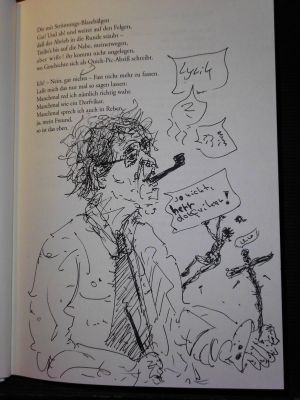 Die mit Strömungs-Blasebälgen
Gas! Und ab! und weiter auf den Felgen,
daß der Abrieb in die Runde stäubt –
Teilis bis auf die Nabe, meinetwegen,
aber wißt: ihr kommt nicht ungelegen,
wo Geschichte sich als Quick-Pic-Abriß schreibt.
Eh! – Nein, gar nichts – Fast nicht mehr zu fassen
Laßt mich das nur mal so sagen lassen:
Manchmal red ich nämlich richtig wahr.
Manchmal wie ein Dorfvikar.
Manchmal sprech ich auch in Reben,
ja, mein Freund,
so ist das eben.
Lyrik
?
so nicht,
herr
dorfvikar!